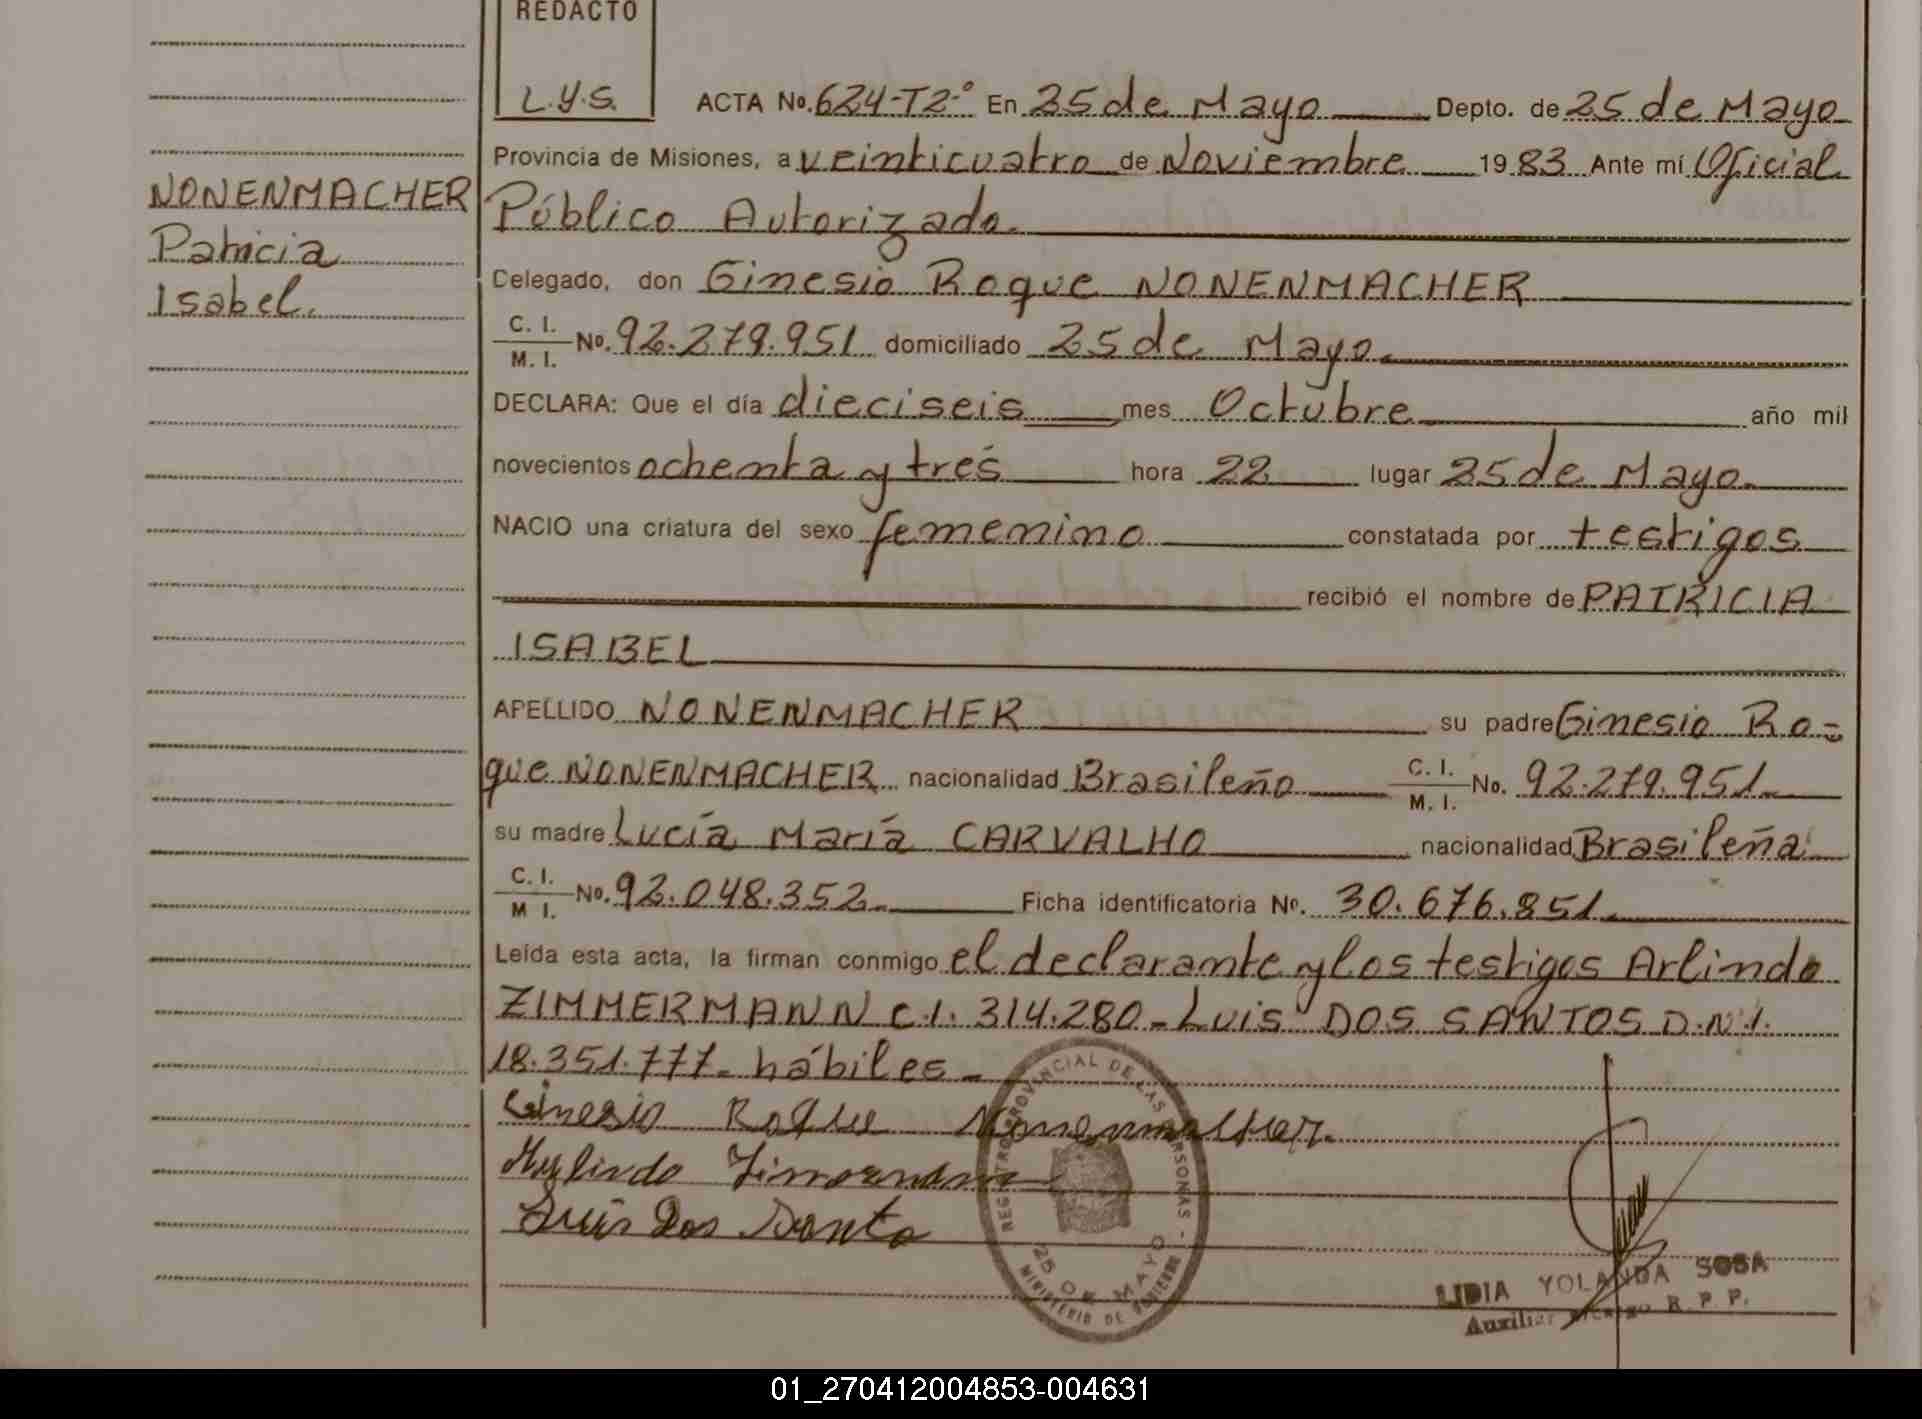 REDACTO
L.Y.S.
ACTA No. 624-T2-º En 25 de Mayo Depto. de 25 de Mayo
Provincia de Misiones, a veinticuatro de Noviembre 19 83 Ante mí Oficial
Público Autorizado.
NONENMACHER
Patricia
Isabel.
Delegado, don Ginesio Roque NONENMACHER
C. I.
M. I. No. 92.279.951 domiciliado 25 de Mayo.
DECLARA: Que el día dieciseis mes Octubre año mil
novecientos ochenta y tres hora 22 lugar 25 de Mayo.
NACIO una criatura del sexo femenino constatada por testigos
recibió el nombre de PATRICIA
ISABEL
APELLIDO NONENMACHER su padre Ginesio Ro=
que NONENMACHER nacionalidad Brasileño C. I. M. I. No. 92.279.951.
su madre Lucía María CARVALHO nacionalidad Brasileña
C. I.
M I. No. 92.048.352. Ficha identificatoria No. 30.676.851.
Leída esta acta, la firman conmigo el declarante y los testigos Arlindo
ZIMMERMANN C.I. 314.280 - Luis DOS SANTOS D.N.I.
18.351.777 - hábiles -
Ginesio Roque Nonenmacher.
Luis Dos Santo
REGISTRO PROVINCIAL DE LAS PERSONAS -
25 DE MAYO
MINISTERIO DE GOBIERNO
LIDIA YOLANDA SOSA
Auxiliar R. P. P.
01_270412004853-004631